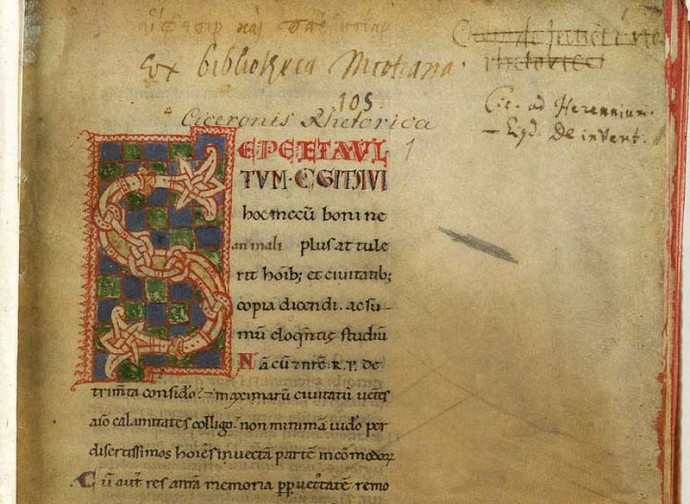 Ex bibliotheca Nicotiana.
rhetorica
Cic. ad Herennium.
— Ejd. De invent.
105
Ciceronis Rhetorica
1
SEPE ET MVL
TVM·CGITAVI
hoc mecū boni ne
an mali plus attule
rit hoīb; et ciuitatib;
copia dicendi. ac su
mū eloqn̄tię studiū
Nā cū nr̄e .R.P. de
trim̄ta considō. maximarū ciuitatū uetęs
aīo calamitates colligo. non minimā uideo per
disertissimos hoīes inuectā partē incōmodoꝝ
Cū aut̄ res a nr̄a memoria pp̄ uetustatē remo